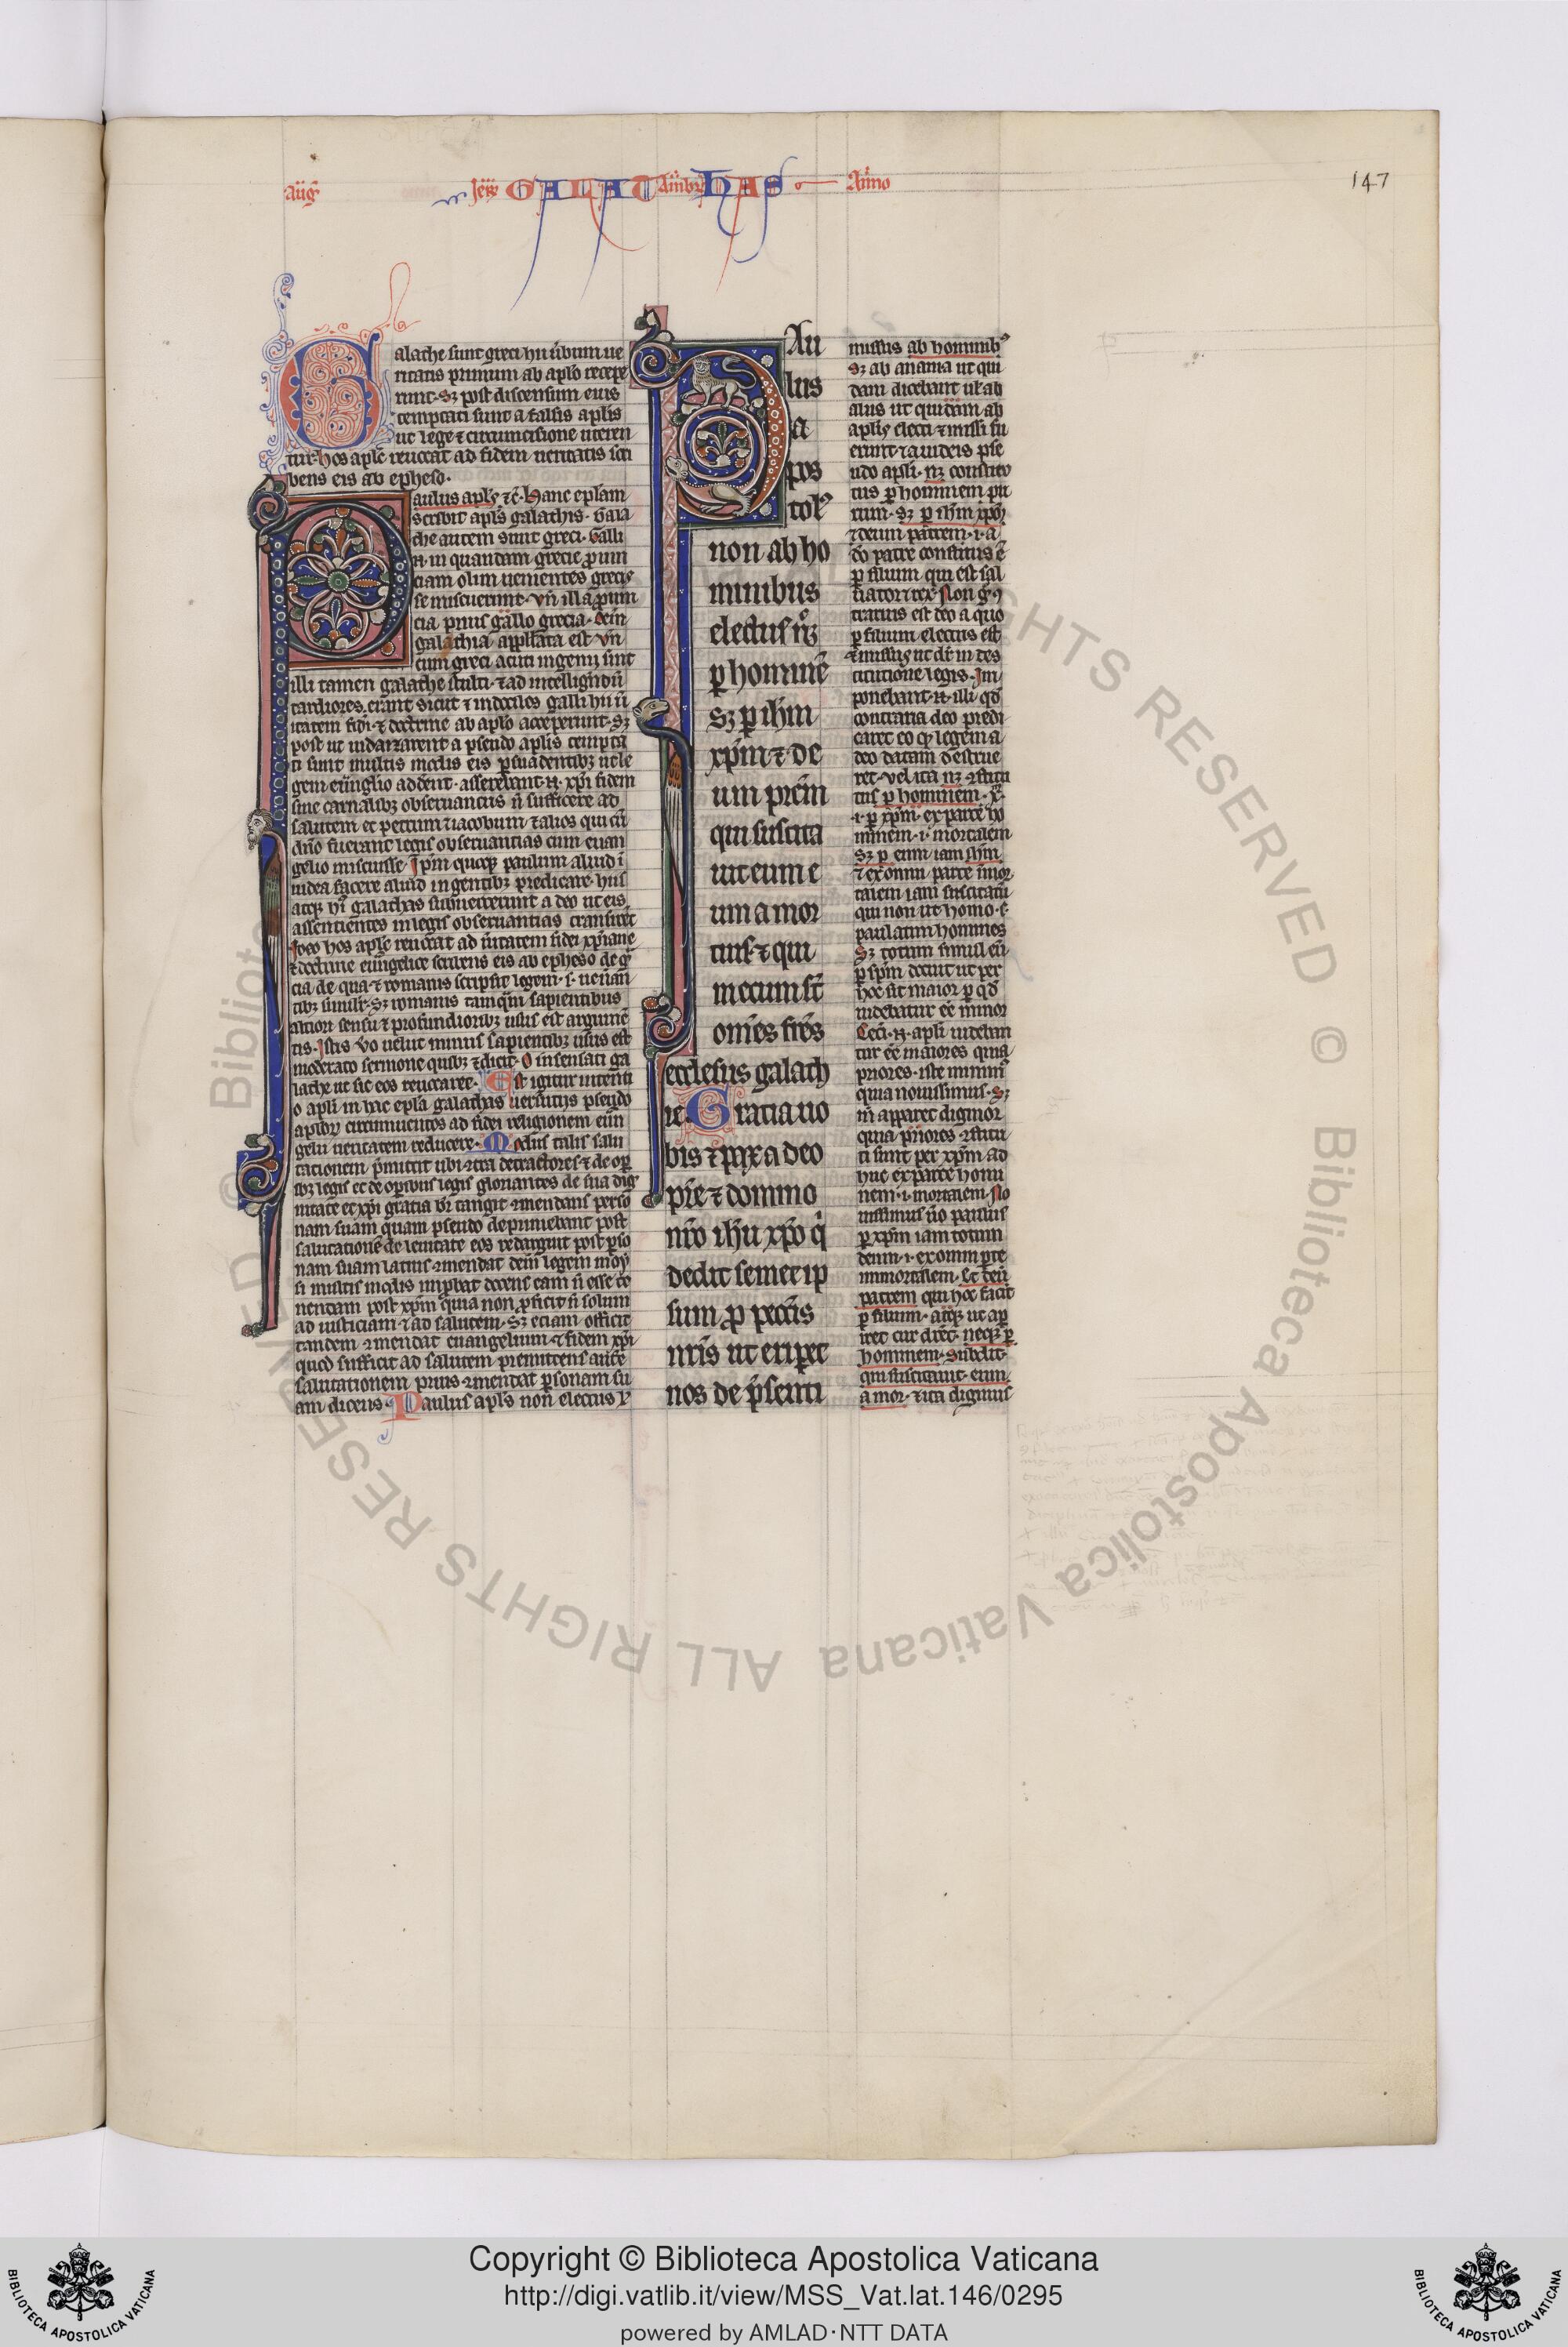 147
Aug̃ JeR̃ GALAT Ambr̃ HAS Aimo
Galathe sunt greci hii ũbum ue
ritatis primum ab apło recepe
runt· sʒ post discensum eius
temptati sunt a falsis aplis
ut lege ⁊ circumcisione uteren
tur· hos apłs reuocat ad fidem ueritatis scri
bens eis ab epheso·
Paulus aplꝰ ⁊c̃· Hanc epłam
scribit apłs galathis· Gala
the autem sunt greci· Galli
.n. in quandam grecie ꝓuin
ciam olim uenientes grecis
se miscuerunt· vñ illa ꝓuin
cia prius gallo grecia· dein̄
galathia appłłata est vñ
cum greci acuti ingenii sint
illi tamen galathe stulti· ⁊ ad intelligendũ
tardiores erant sicut ⁊ indociles galli hii ũ
itatem fidei ⁊ doctrine ab apło acceperunt· sʒ
post ut iudaizarent a pseudo aplis tempta
ti sunt multis modis eis ꝑsuadentibʒ ut le
gem eũnglio addent· asserebant .n. xp̃i fidem
sine carnalibʒ obseruantiis ñ sufficere ad
salutem et petrum ⁊ iacobum ⁊ alios qui cũ
dño fuerant legis obseruantias cum euan
gelio miscuisse· Ip̃m quoqʒ paulum aliud ĩ
iudea facere aliud in gentibʒ predicare· hiis
atqʒ hĩ galathas subuerterunt a deo ut eis
assentientes in legis obseruantias transirent
Ideo hos apłs reuocat ad ũitatem fidei xp̃iane
⁊ doctrine eũngelice scribens eis ab epheso de
tis· Istis ũo uelut minus sapientibʒ usus est
moderato sermone quibʒ ⁊ dicit· O insensati ga
lathe ut sic eos reuocaret· Est igitur intenti
o apłi in hac epła galathas uersutiis pseudo
aplorꝫ circumuentos ad fidei religionem eũn
gelii ueritatem reducere· Modus talis salu
tationem p̃mittit ubi ⁊ta detractores ⁊ de oꝑ
nitate et xp̃i gratia br̃ tangit ↄmendans perso
nam suam quam pseudo deprimebant post
salutationẽ de leuitate eos redarguit post ꝑso
nam suam latius ↄmendat dein̄ legem moy
si multis modis imꝓbat docens eam ñ esse te
nendam post xp̃m quia non ꝓficit ñ solum
ad iusticiam ⁊ ad salutem· sʒ etiam officit
tandem ↄmendat euangelium ⁊ fidem xp̃i
quod sufficit ad salutem premittens ante
salutationem prius ↄmendat ꝑsonam su
am dicens· Paulus apłs non electus
PAu
lus
a
pos
tolꝰ
non ab ho
minibus
electus nʒ
ꝑ hominẽ
sʒ ꝑ ih̃m
xp̃m ⁊ de
um prẽm
qui suscita
uit eum e
um a mor
tuis· ⁊ qui
mecum st̃
om̃es fr̃es
ecclesiis galath
ie· Gratia uo
bis ⁊ pax a deo
pr̃e ⁊ domino
nr̃o ih̃u xp̃o q̃
dedit semetip
sum ꝓ pccĩs
nr̃is ut eriꝑet
nos de p̃senti
missus ab hominibꝰ
sʒ ab anania ut qui
dam dicebant uł ab
aliis ut quidam ab
aplis electi ⁊ missi fu
erunt ⁊ a iudeis pse
udo apłi· nʒ constitu
tus ꝑ hominem pu
rum· sʒ ꝑ ih̃m xp̃m
⁊ deum patrem· ·i· a
dõ patre constitutus ẽ
ꝑ filium qui est sal
uator ⁊ rex· Non g̊
trarius est deo a quo
ꝑ filium electus est
⁊ missus ut dr̃ in des
titutione legis· Im
ponebant .n. illi qđ
contraria deo predi
caret eo ꝙ legem a
deo datam destrue
ret· vel ita nʒ ↄstitu
tus ꝑ hominem·
·i· ꝑ xp̃m· ex parte ho
minem ·i· mortalem
sʒ ꝑ eum iam ih̃m
⁊ ex omni parte inmor
talem iam suscitatũ
qui non ut homo· s·
paulatim homines
sʒ totum simul eũ
ꝑ sp̃m docuit ut per
hoc sit maior ꝑ qđ
uidebatur eẽ minor
Cetĩ .n. apłi uideban
tur eẽ maiores quia
priores· iste minimꝰ
quia nouissimus· sʒ
m̃ apparet dignior
quia priores ↄstitu
ti sunt per xp̃m ad
huc ex parte homi
nem ·i· mortalem· No
uissimus ũo paulus
ꝑ xp̃m iam totum
deum ·i· ex omni ꝑte
inmortalem· Et deũ
patrem qui hoc facit
ꝑ filium· atqʒ ut ap
iret cur diret· neqʒ ꝑ
hominem· subdit·
qui suscitauit· eum
a mor· ⁊ ita dignius
Copyright © Biblioteca Apostolica Vaticana
http://digi.vatlib.it/view/MSS_Vat.lat.146/0295
powered by AMLAD·NTT DATA
BIBLIOTECA APOSTOLICA VATICANA
BIBLIOTECA APOSTOLICA VATICANA
© Biblioteca Apostolica Vaticana ALL RIGHTS RESERVED